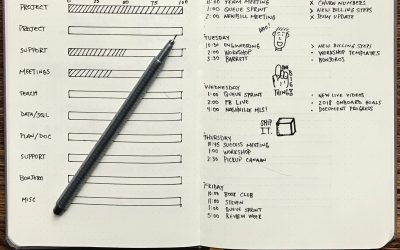 0 25 50 75 100
PROJECT
PROJECT
SUPPORT
MEETINGS
TEACH
DATA/SQL
PLAN/DOC
SUPPORT
BONJORO
MISC
11:00 TEAM MEETING
1:00 QUEUE SPRINT
2:00 NEWBILL MEETING
x CHURN NUMBERS
> NEW BILLING STEPS
x TEAM UPDATE
TUESDAY
10:30 ENGINEERING
2:00 WORKSHOP
3:30 BARRETT
> NEW BILLING STEPS
> WORKSHOP TEMPLATES
> BONJOROS
THINGS
WEDNESDAY
1:00 QUEUE SPRINT
2:00 FB LIVE
4:00 NASHVILLE MLS!
• NEW LIVE VIDEOS
• 2018 ONBOARD GOALS
• DOCUMENT PROGRESS
SHIP
IT.
THURSDAY
10:45 SUCCESS MEETING
1:00 WORKSHOP
2:30 PICKUP CANAAN
FRIDAY
10:00 BOOK CLUB
11:00 STEVEN
1:00 QUEUE SPRINT
5:00 REVIEW WEEK